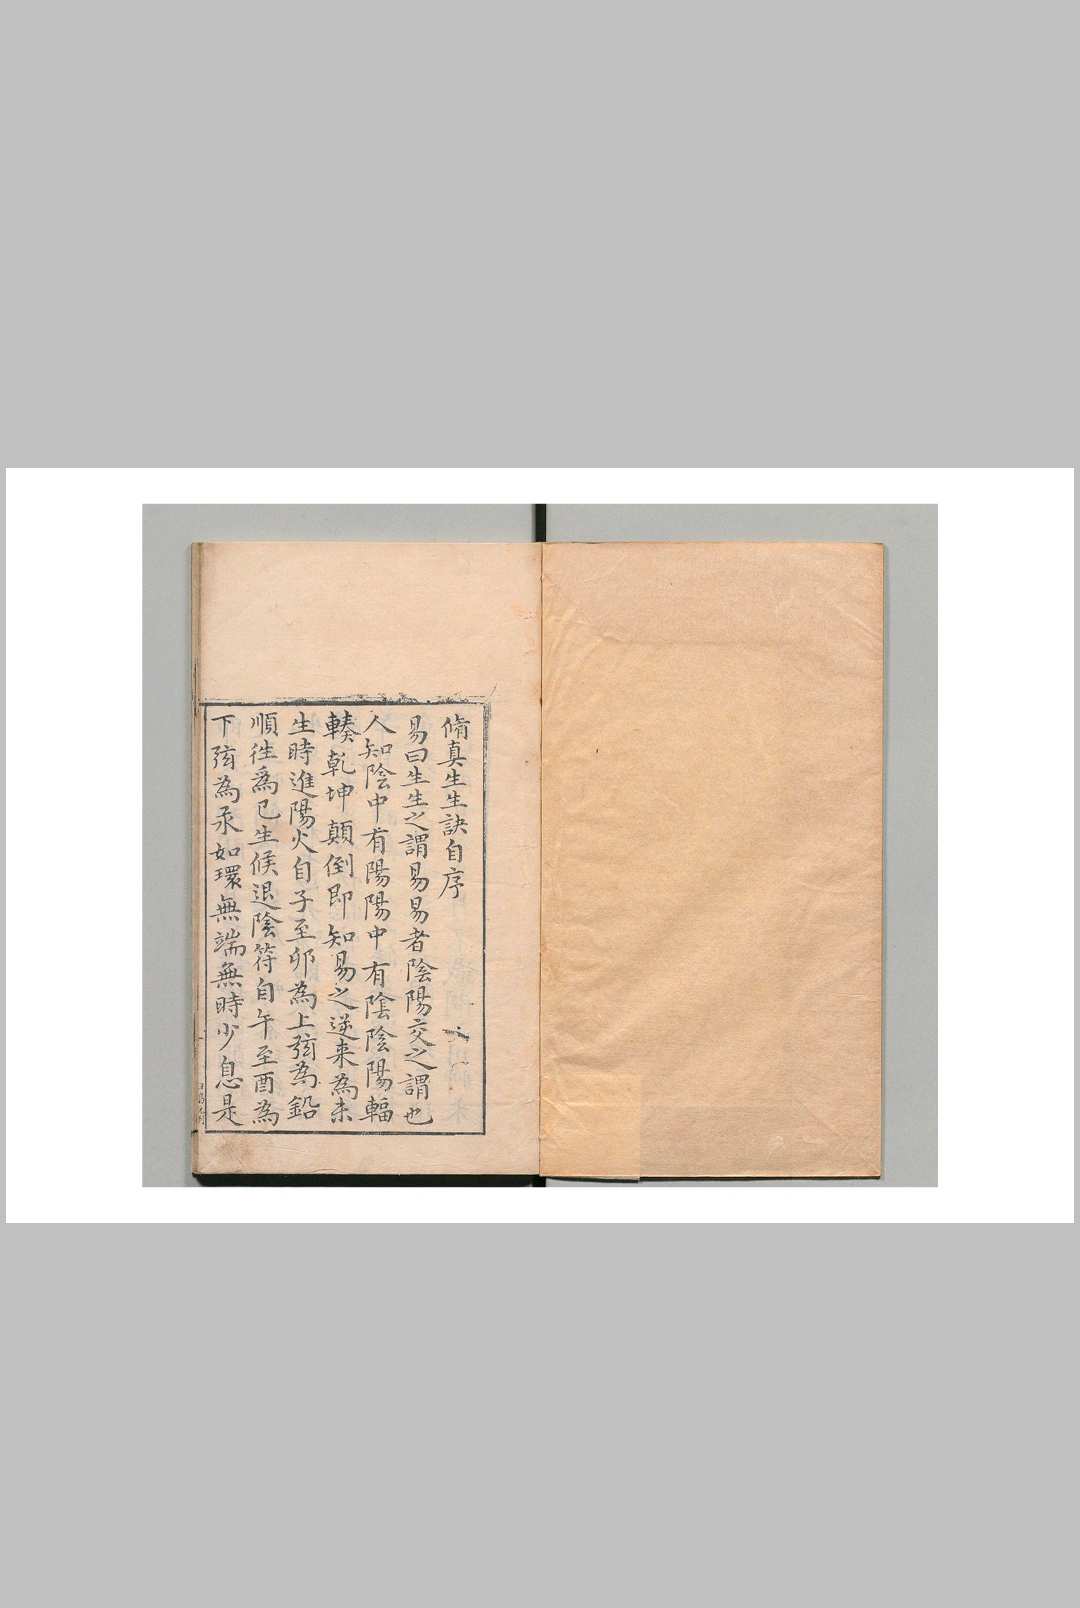 脩真生生訣自序
易曰生生之謂易易者陰陽交之謂也
人知陰中有陽陽中有陰陰陽輻
輳乾坤顛倒即知易之逆来為未
生時進陽火自子至卯為上弦為鉛
順徃爲已生候退陰符自午至酉為
下弦為汞如環無端無時少息是